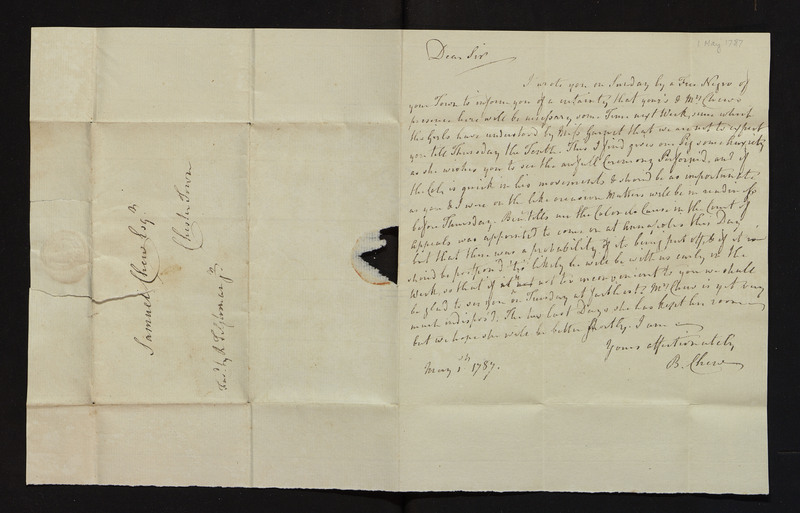 1 May 1787
Dear Sir
I wrote you on Tuesday by a Free Negro of
your Town to inform you of a certainty that your's & Mrs Chew's
presence here will be necessary some Time next Week, since which
the Girls have understood by Miss Gurnet that we are not to expect
you till Thursday the Tenth. This I find gives our Peg some anxiety
as she wishes you to see the awfull Ceremony Perform'd, and if
the Colo. is quick in his movements & should be as importunate
as you & I were on the like occasion Matters will be in readiness
before Thursday. Ben tells me the Colonels Cause in the Court of
Appeals was appointed to come on at Annapolis this Day
but that there was a probability of its being put off, & if it
should be postpon'd 'tis likely he will be with us early in the
Week, so that if it not be inconvenient to you we shall
be glad to see you on Tuesday at furthest. Mrs Chew is yet very
much indispos'd. The two last Days she has kept her room
but we hope she will be better shortly. I am
Yours affectionately
B. Chew
May 1st 1787.
Samuel Chew Esqr
Chester Town
Favd by Mr Tilghman Jr.